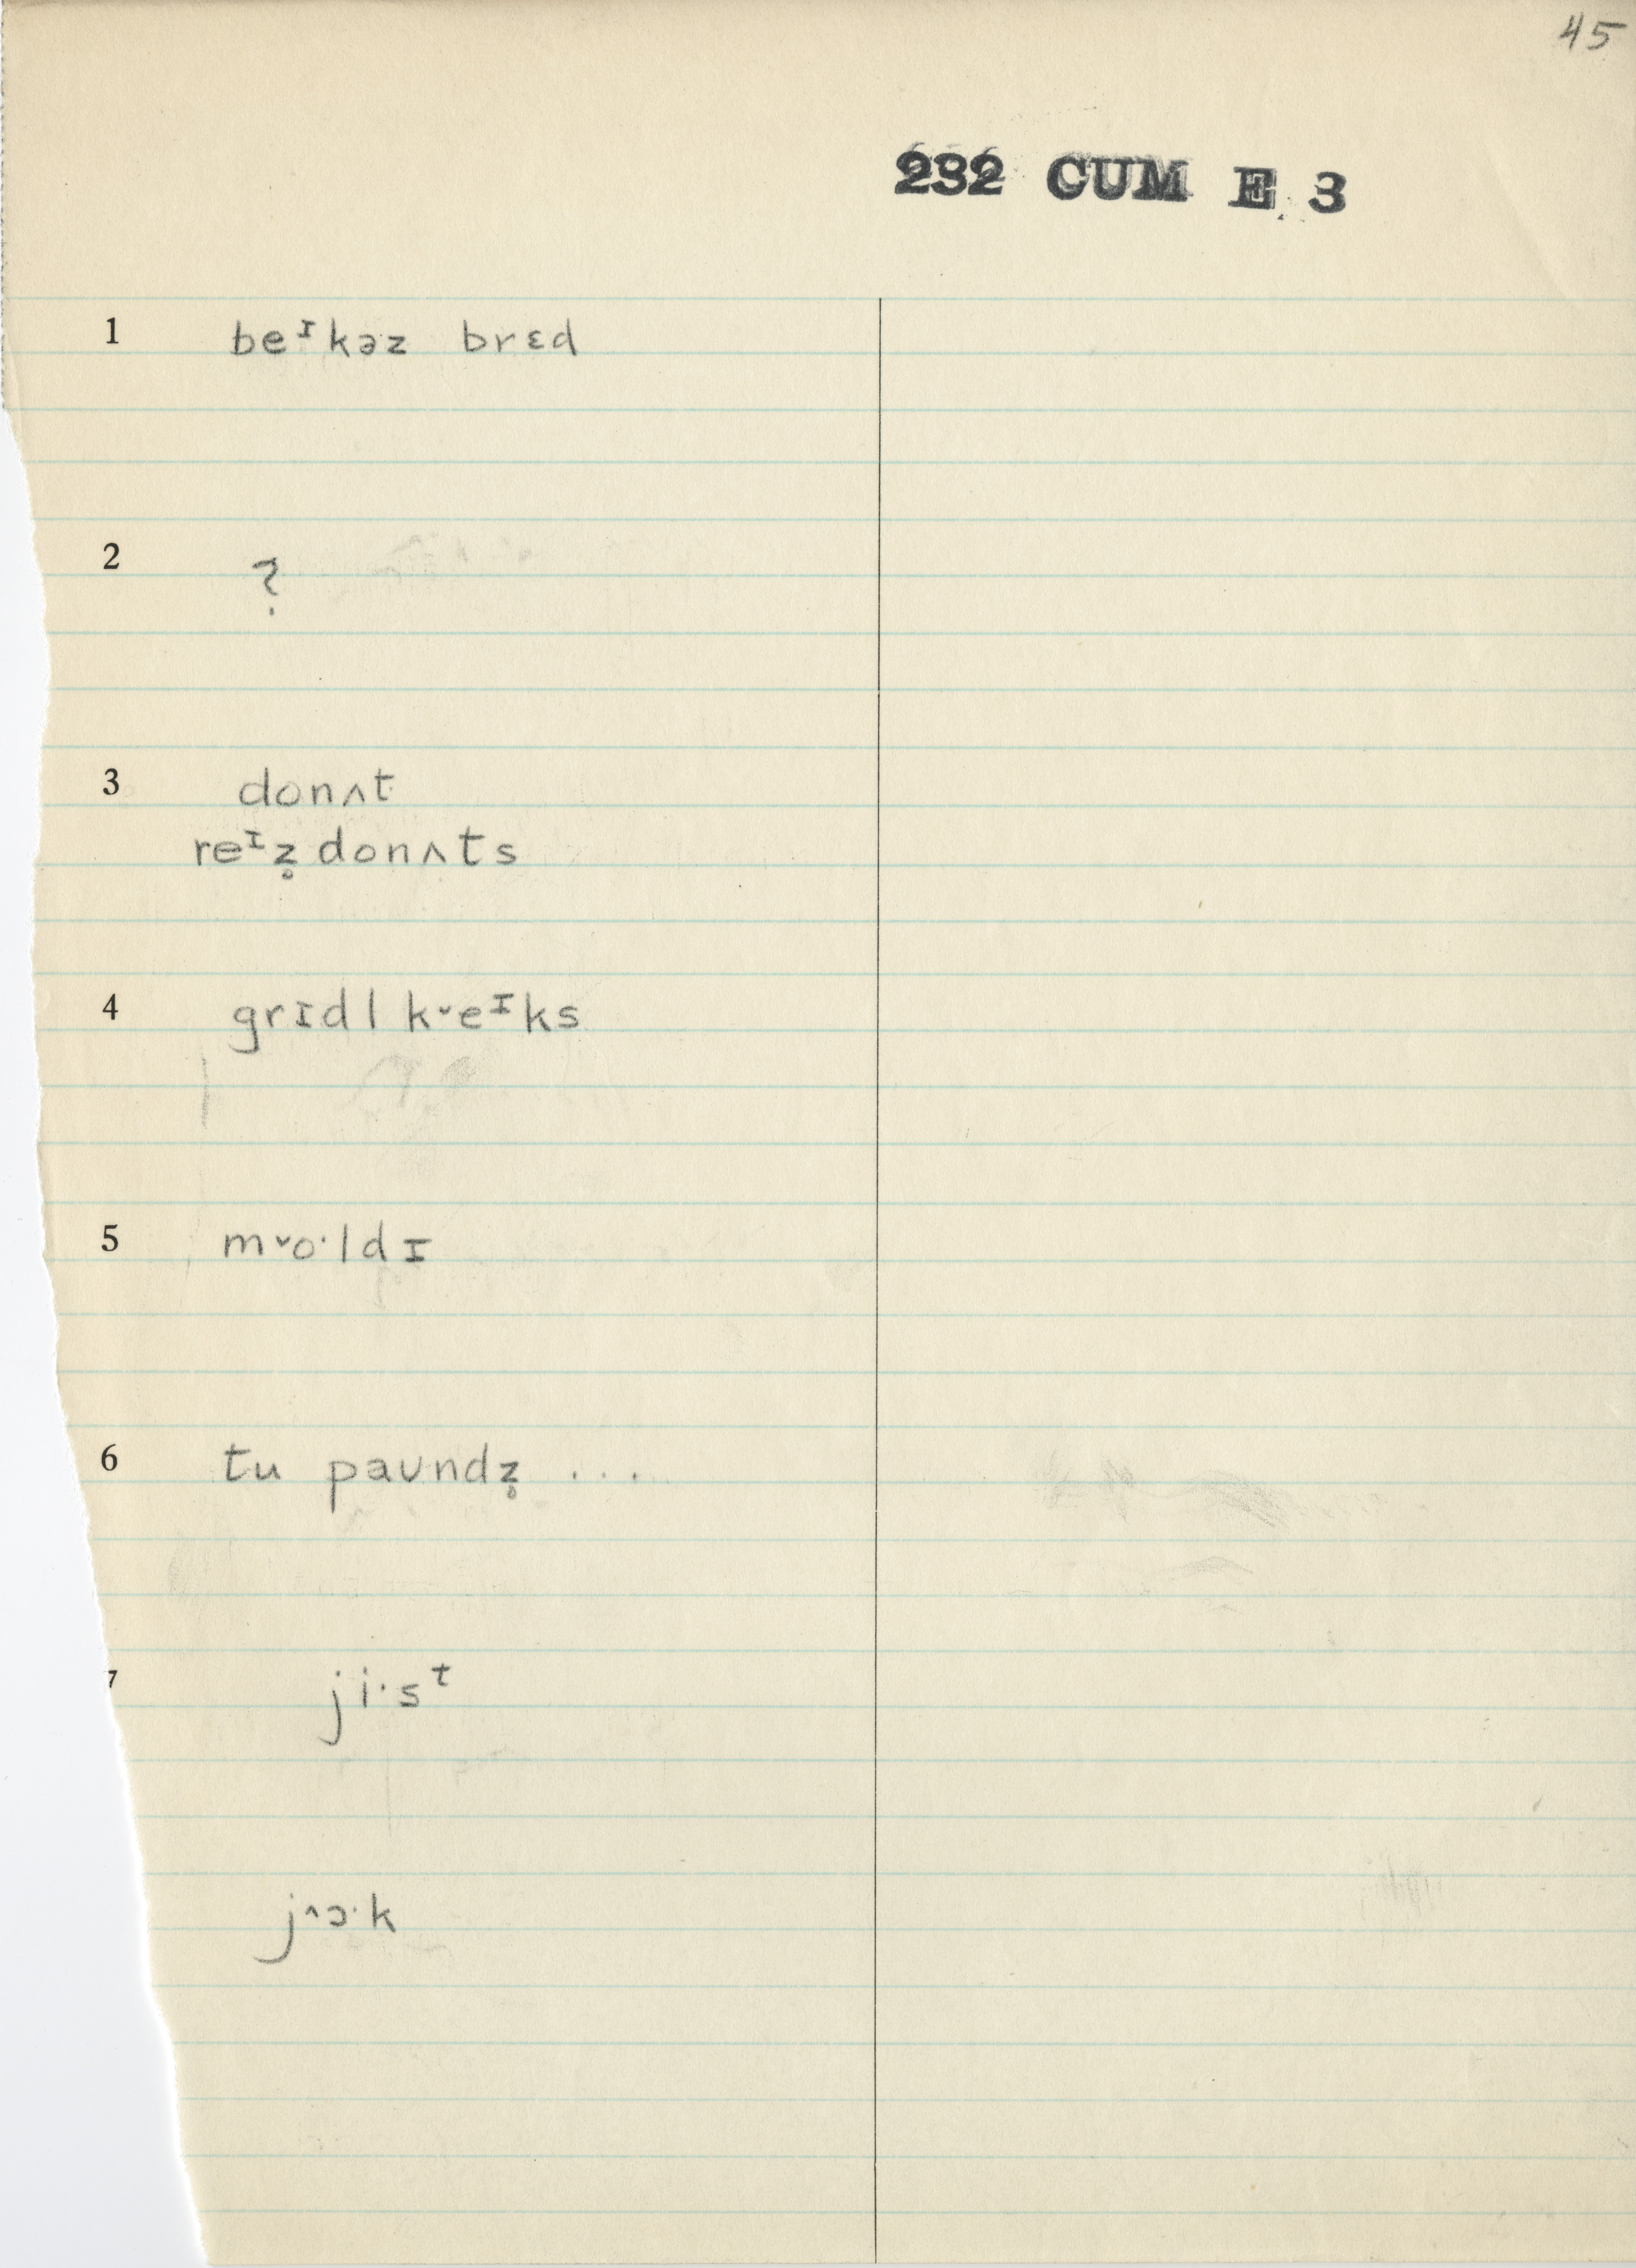 45
232 CUM E 3
1 beᶦkəz brɛd
2 ?
3 donʌt
reᶦz̥donʌts
4 grɪdl k˅eᶦks
5 m˅o·ldɪ
6 tu paʊndz̥ ...
7 ji·sᵗ
j˄ɔ·k